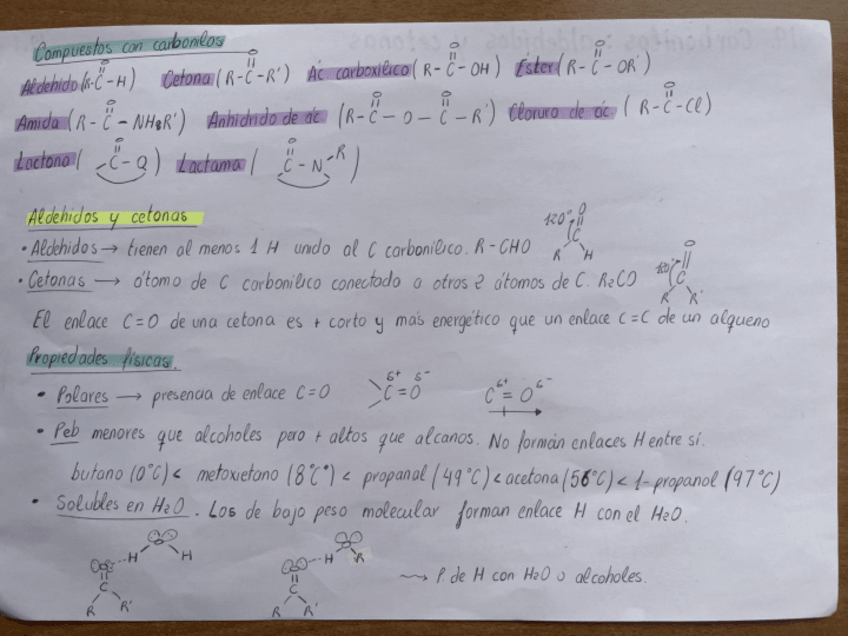 Compuestos con carbonilos
Aldehído (R-C-H) Cetona (R-C-R') Ác carboxílico (R-C-OH) Éster (R-C-OR')
O O O O
Amida (R-C-NH2R') Anhidrido de ác (R-C-O-C-R') Cloruro de ác. (R-C-Cl)
O O O O
Lactona ( C-O ) Lactama ( C-N-R )
O O
Aldehidos y cetonas
• Aldehidos → tienen al menos 1 H unido al C carbonílico. R-CHO
120° O C R H
• Cetonas → átomo de C carbonílico conectado a otros 2 átomos de C. R2CO
120° O C R R'
El enlace C=O de una cetona es + corto y más energético que un enlace C=C de un alqueno
Propiedades físicas.
• Polares → presencia de enlace C=O δ+ δ- C=O δ+ δ- C=O
• Peb menores que alcoholes pero + altos que alcanos. No forman enlaces H entre sí.
butano (0°C) < metoxietano (8°C) < propanal (49°C) < acetona (56°C) < 1-propanol (97°C)
• Solubles en H2O. Los de bajo peso molecular forman enlace H con el H2O.
O H O H C R R'
O H O R C R R'
P. de H con H2O o alcoholes.